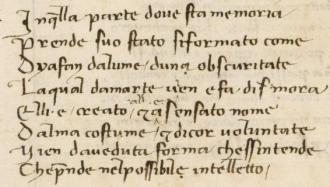 In qlla parte dove sta memoria
Prende suo stato si formato come
Dyafan dalume. dunq obscuritate
La qual damarte uen e fa dimora
Elli e creato & a sensato nome
Dalma costume, & dicor voluntate
Vien da veduta forma chessintende
Che pnde nel possibile intelletto,